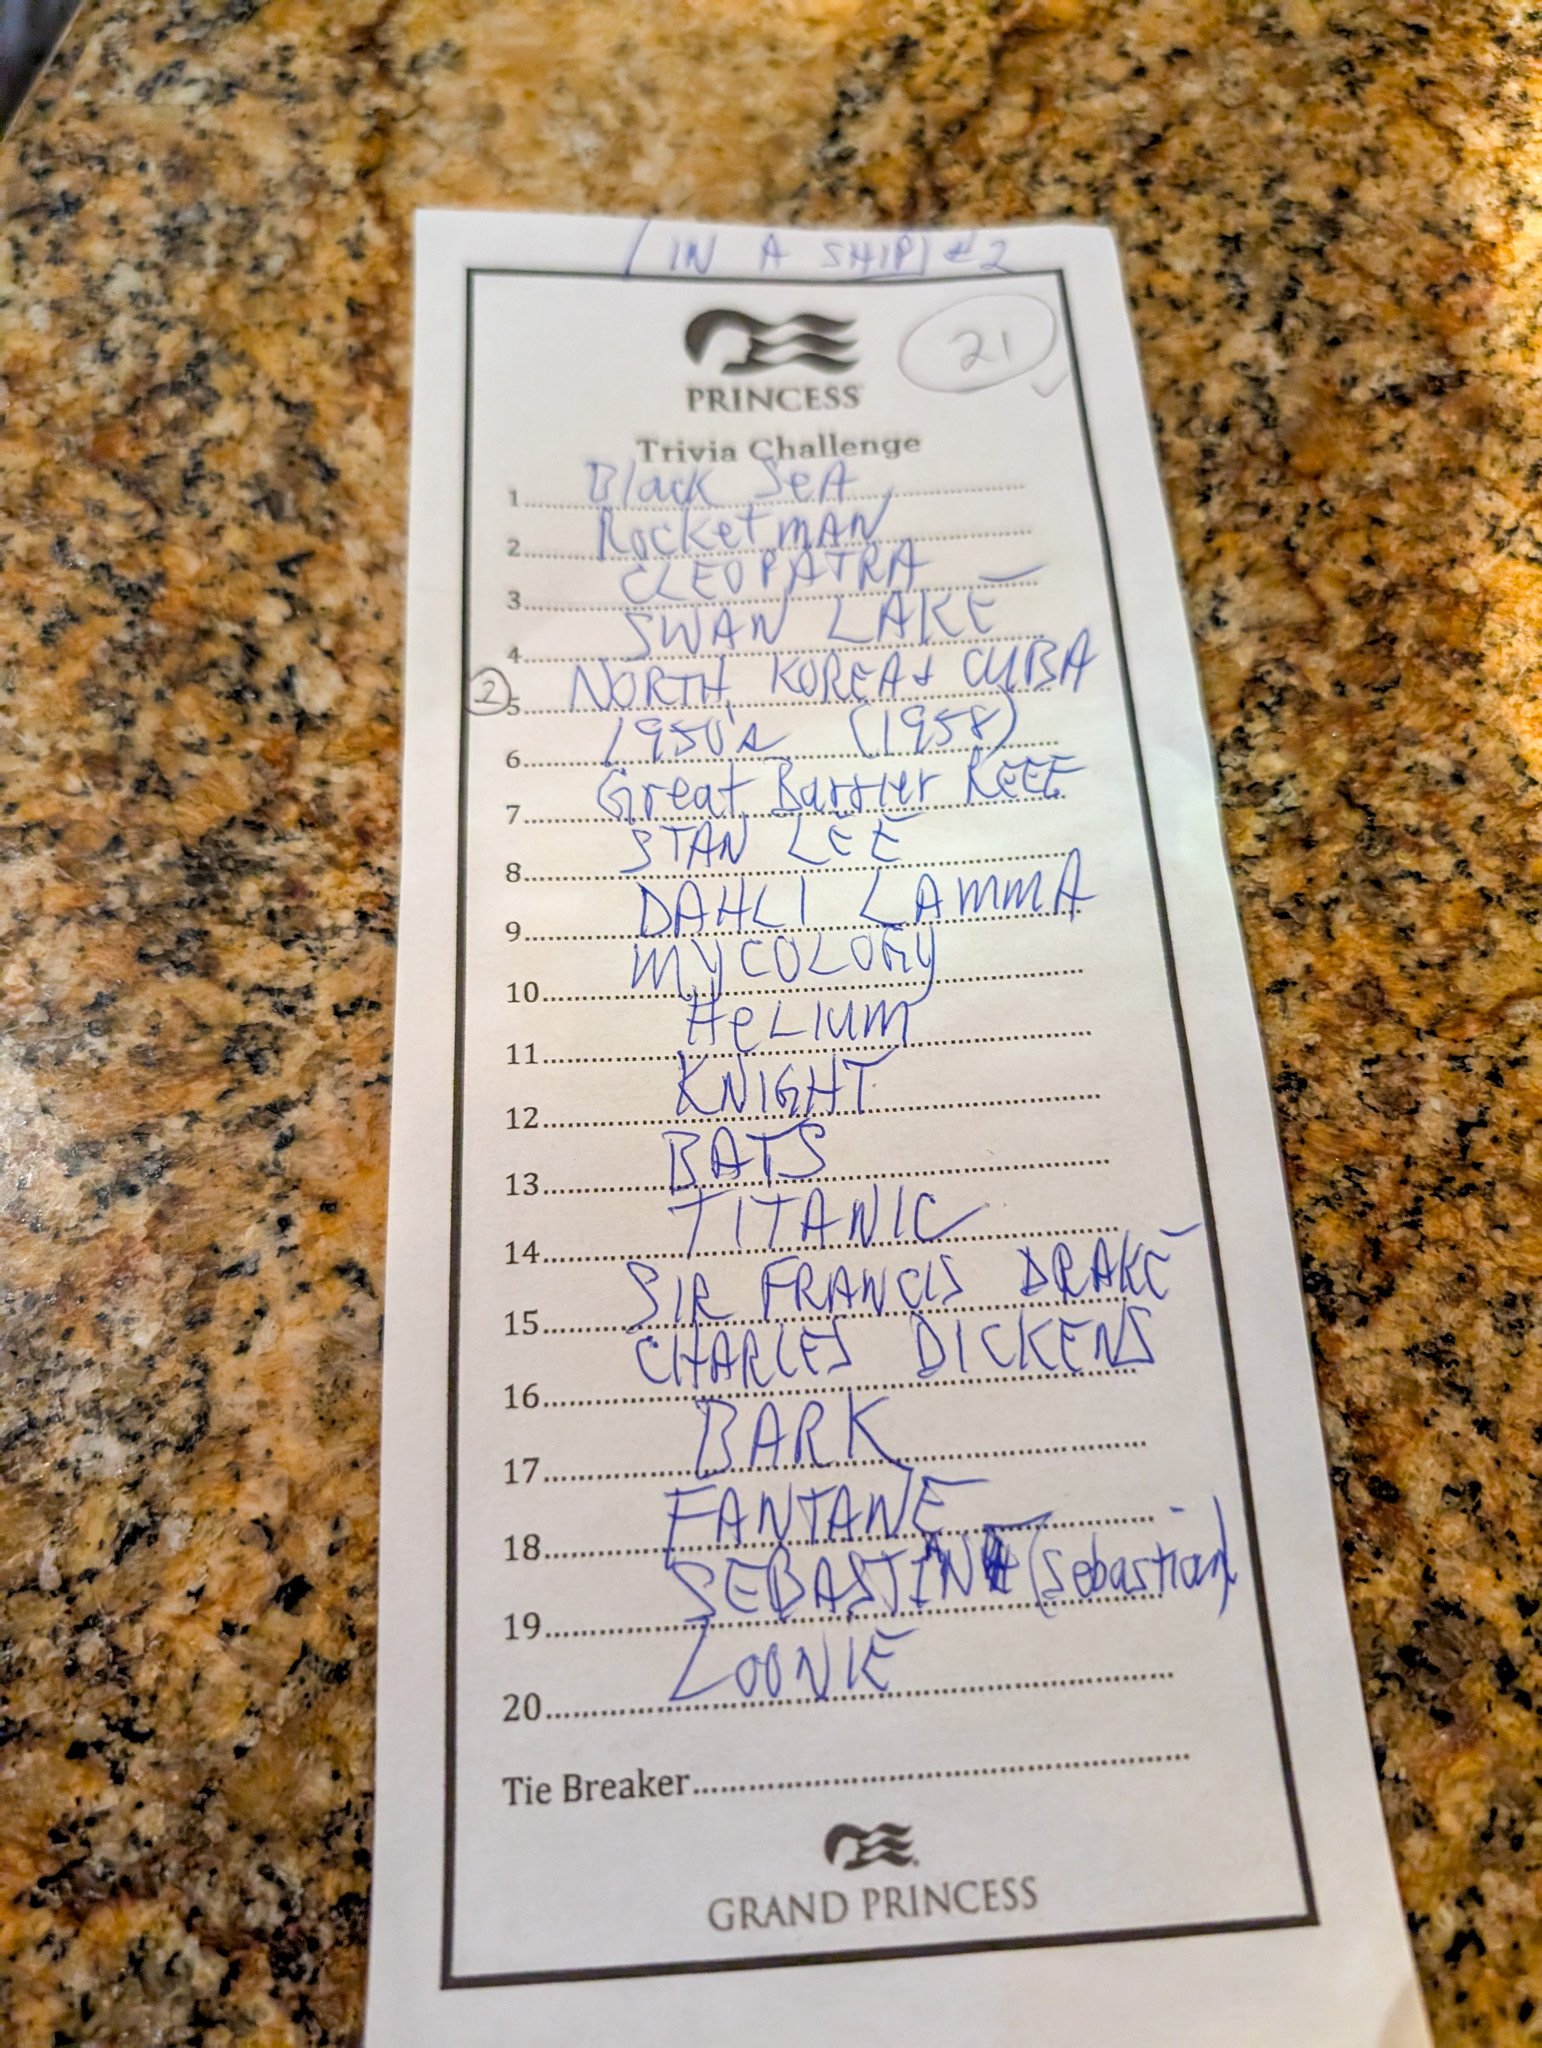 (IN A SHIP) #2
21
PRINCESS
Trivia Challenge
1 Black SeA
2 Rocketman
3 CLEOPATRA
4 SWAN LAKE
2 5 NORTH KOREA + CUBA
6 1950's (1958)
7 Great Barrier REEF
8 STAN LEE
9 DAHLI LAMMA
10 MYCOLOGY
11 HeLIUM
12 KNIGHT
13 BATS
14 TITANIC
15 SIR FRANCIS DRAKE
16 CHARLES DICKENS
17 BARK
18 FANTANE
19 SEBASTIAN (Sebastian)
20 LOONIE
Tie Breaker
GRAND PRINCESS